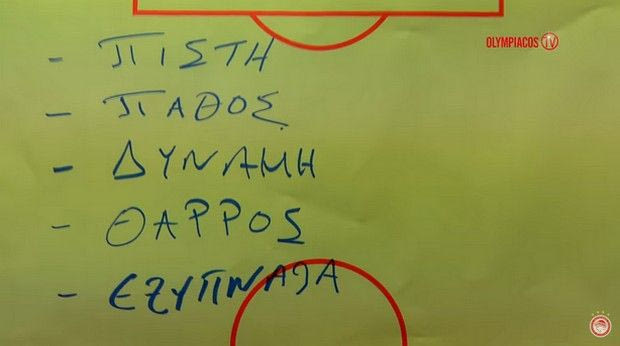 OLYMPIACOS TV
- ΠΙΣΤΗ
- ΠΑΘΟΣ
- ΔΥΝΑΜΗ
- ΘΑΡΡΟΣ
- ΕΞΥΠΝΑΔΑ